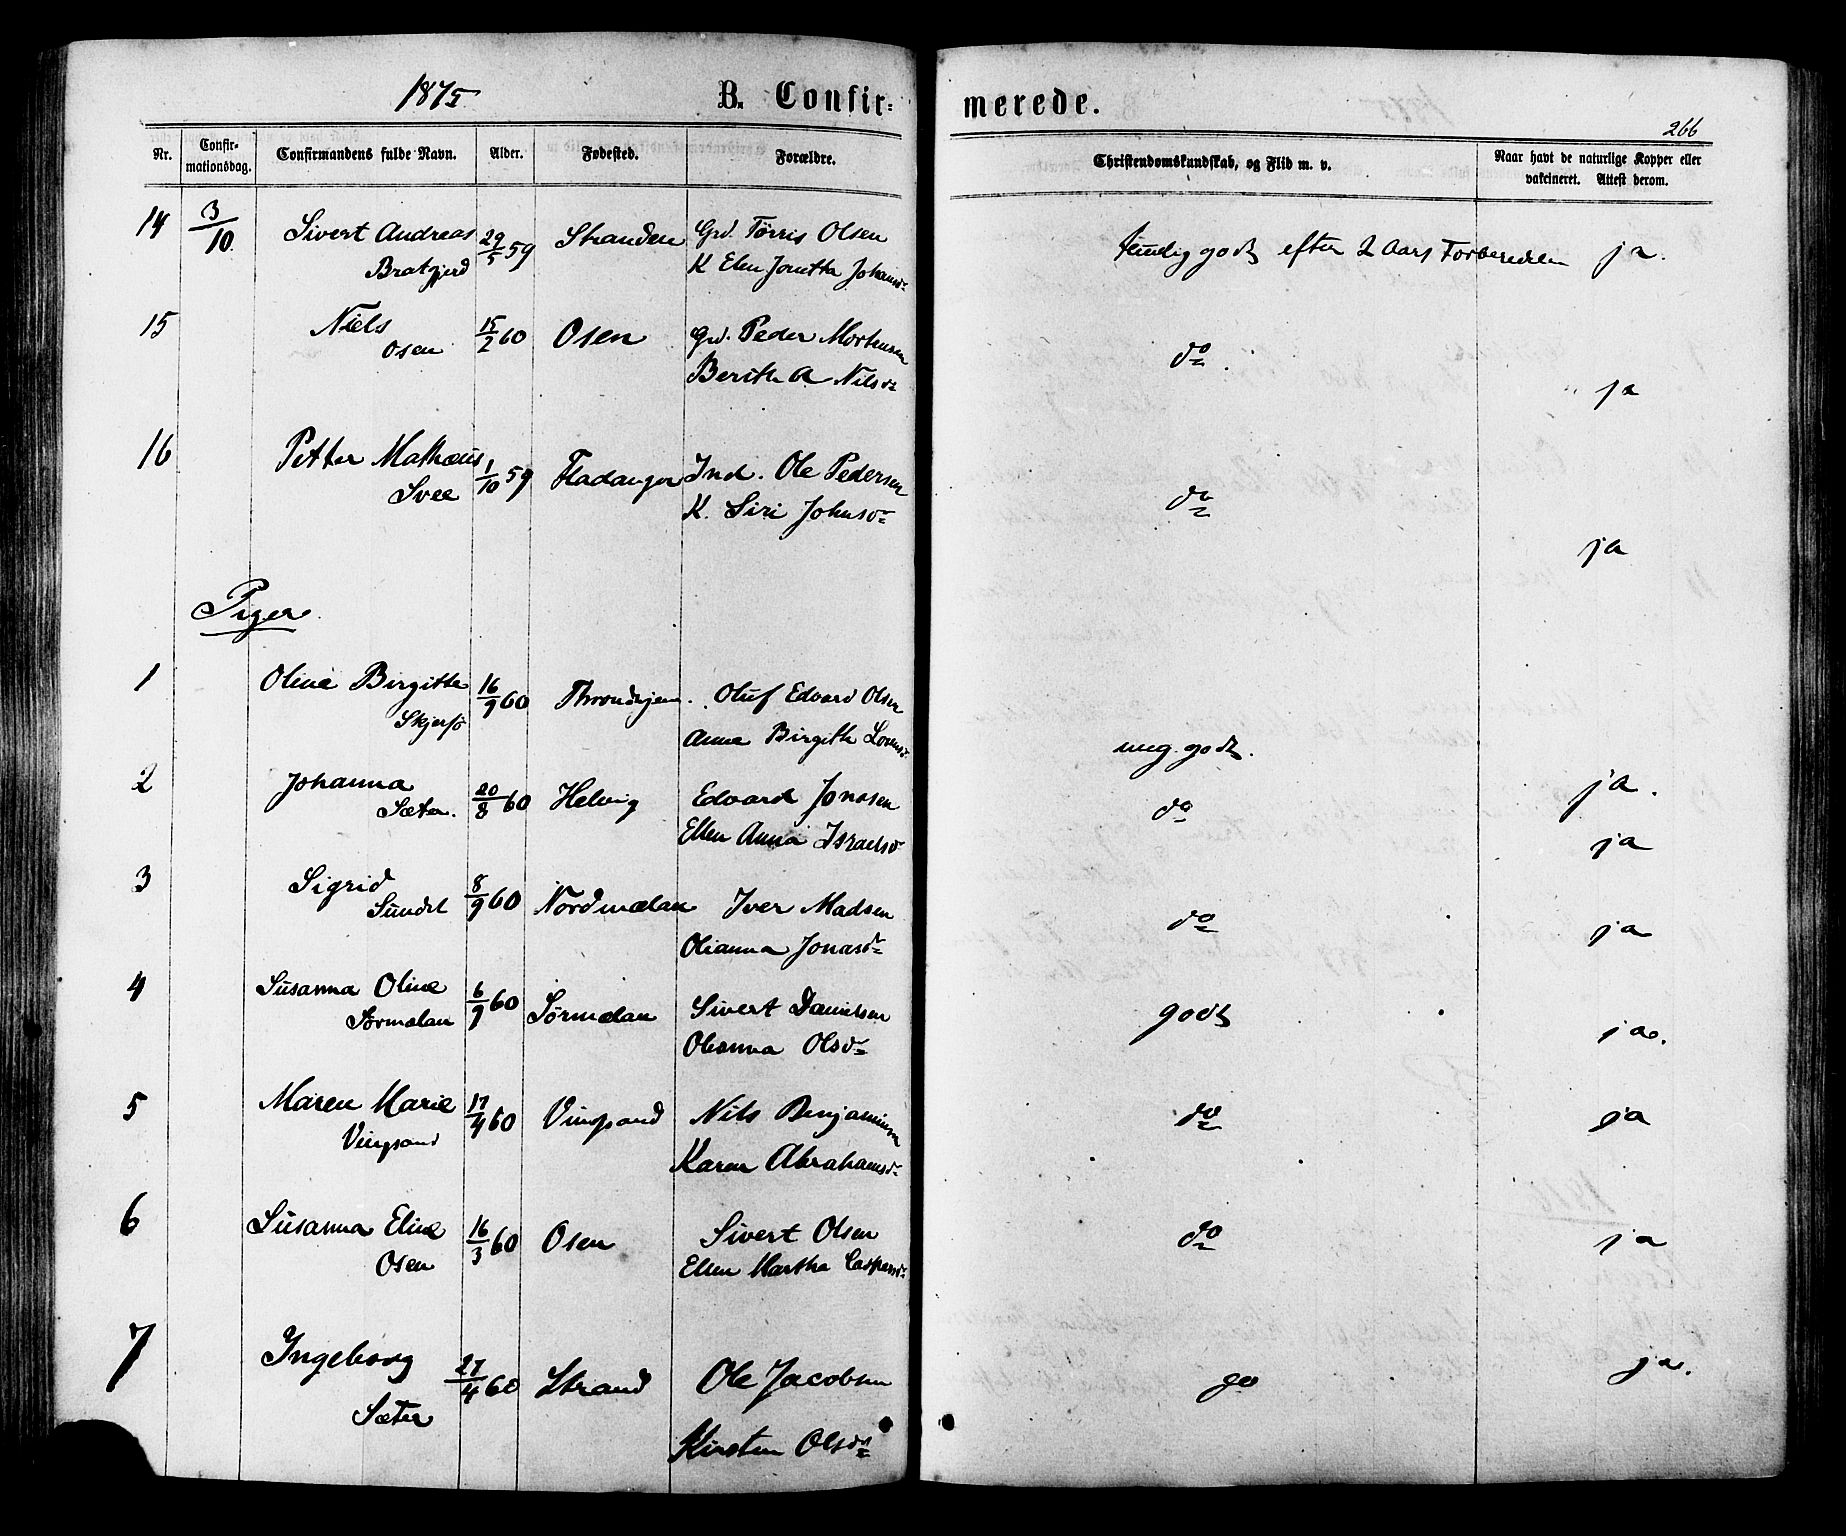 1875 B. Confir= merede.
266
Nr. Confir-mationsdag. Confirmandens fulde Navn. Alder. Fødested. Forældre. Christendomskundskab, og Flid m. v. Naar havt de naturlige Kopper eller vakcineret. Attest derom.
14 3/10 Sivert Andreas 29/5 59 Stranden Grd. Tørris Olsen temlig godt efter 2 Aars Forberedelse ja.
Bratgjerd K Elen Jonetta Johansd
15 Niels 15/2 60 Osen Grd. Peder Mortensen do. ja
Osen Berith A Nilsd
16 Petter Mathæus 1/10 59 Fladanger Ind. Ole Pedersen do ja
Svee K. Siri Johnsd
Piger
1 Oline Birgitte 16/9 60 Throndhjem. Oluf Edvard Olsen meg. godt. ja.
Skjersø Anna Birgith Lorensd
2 Johanna 20/8 60 Helvig Edvard Jonsen do ja
Sæter. Ellen Anna Israelsd
3 Sigrid 8/9 60 Nordmælan Iver Madsen do ja
Sundet Olianna Jonasd
4 Susanna Oline 6/9 60 Sørmelan Sivert Danielsen godt ja.
Sørmelan Oleanna Olsd
5 Maren Marie 17/4 60 Vingsand Nils Benjaminsen do ja
Vingsand Karen Abrahamsd
6 Susanna Eline 16/3 60 Osen Sivert Olsen do ja
Osen Ellen Martha Caspersd
7 Ingeborg 27/4 60 Strand Ole Jacobsen do ja.
Sæter Kirsten Olsd